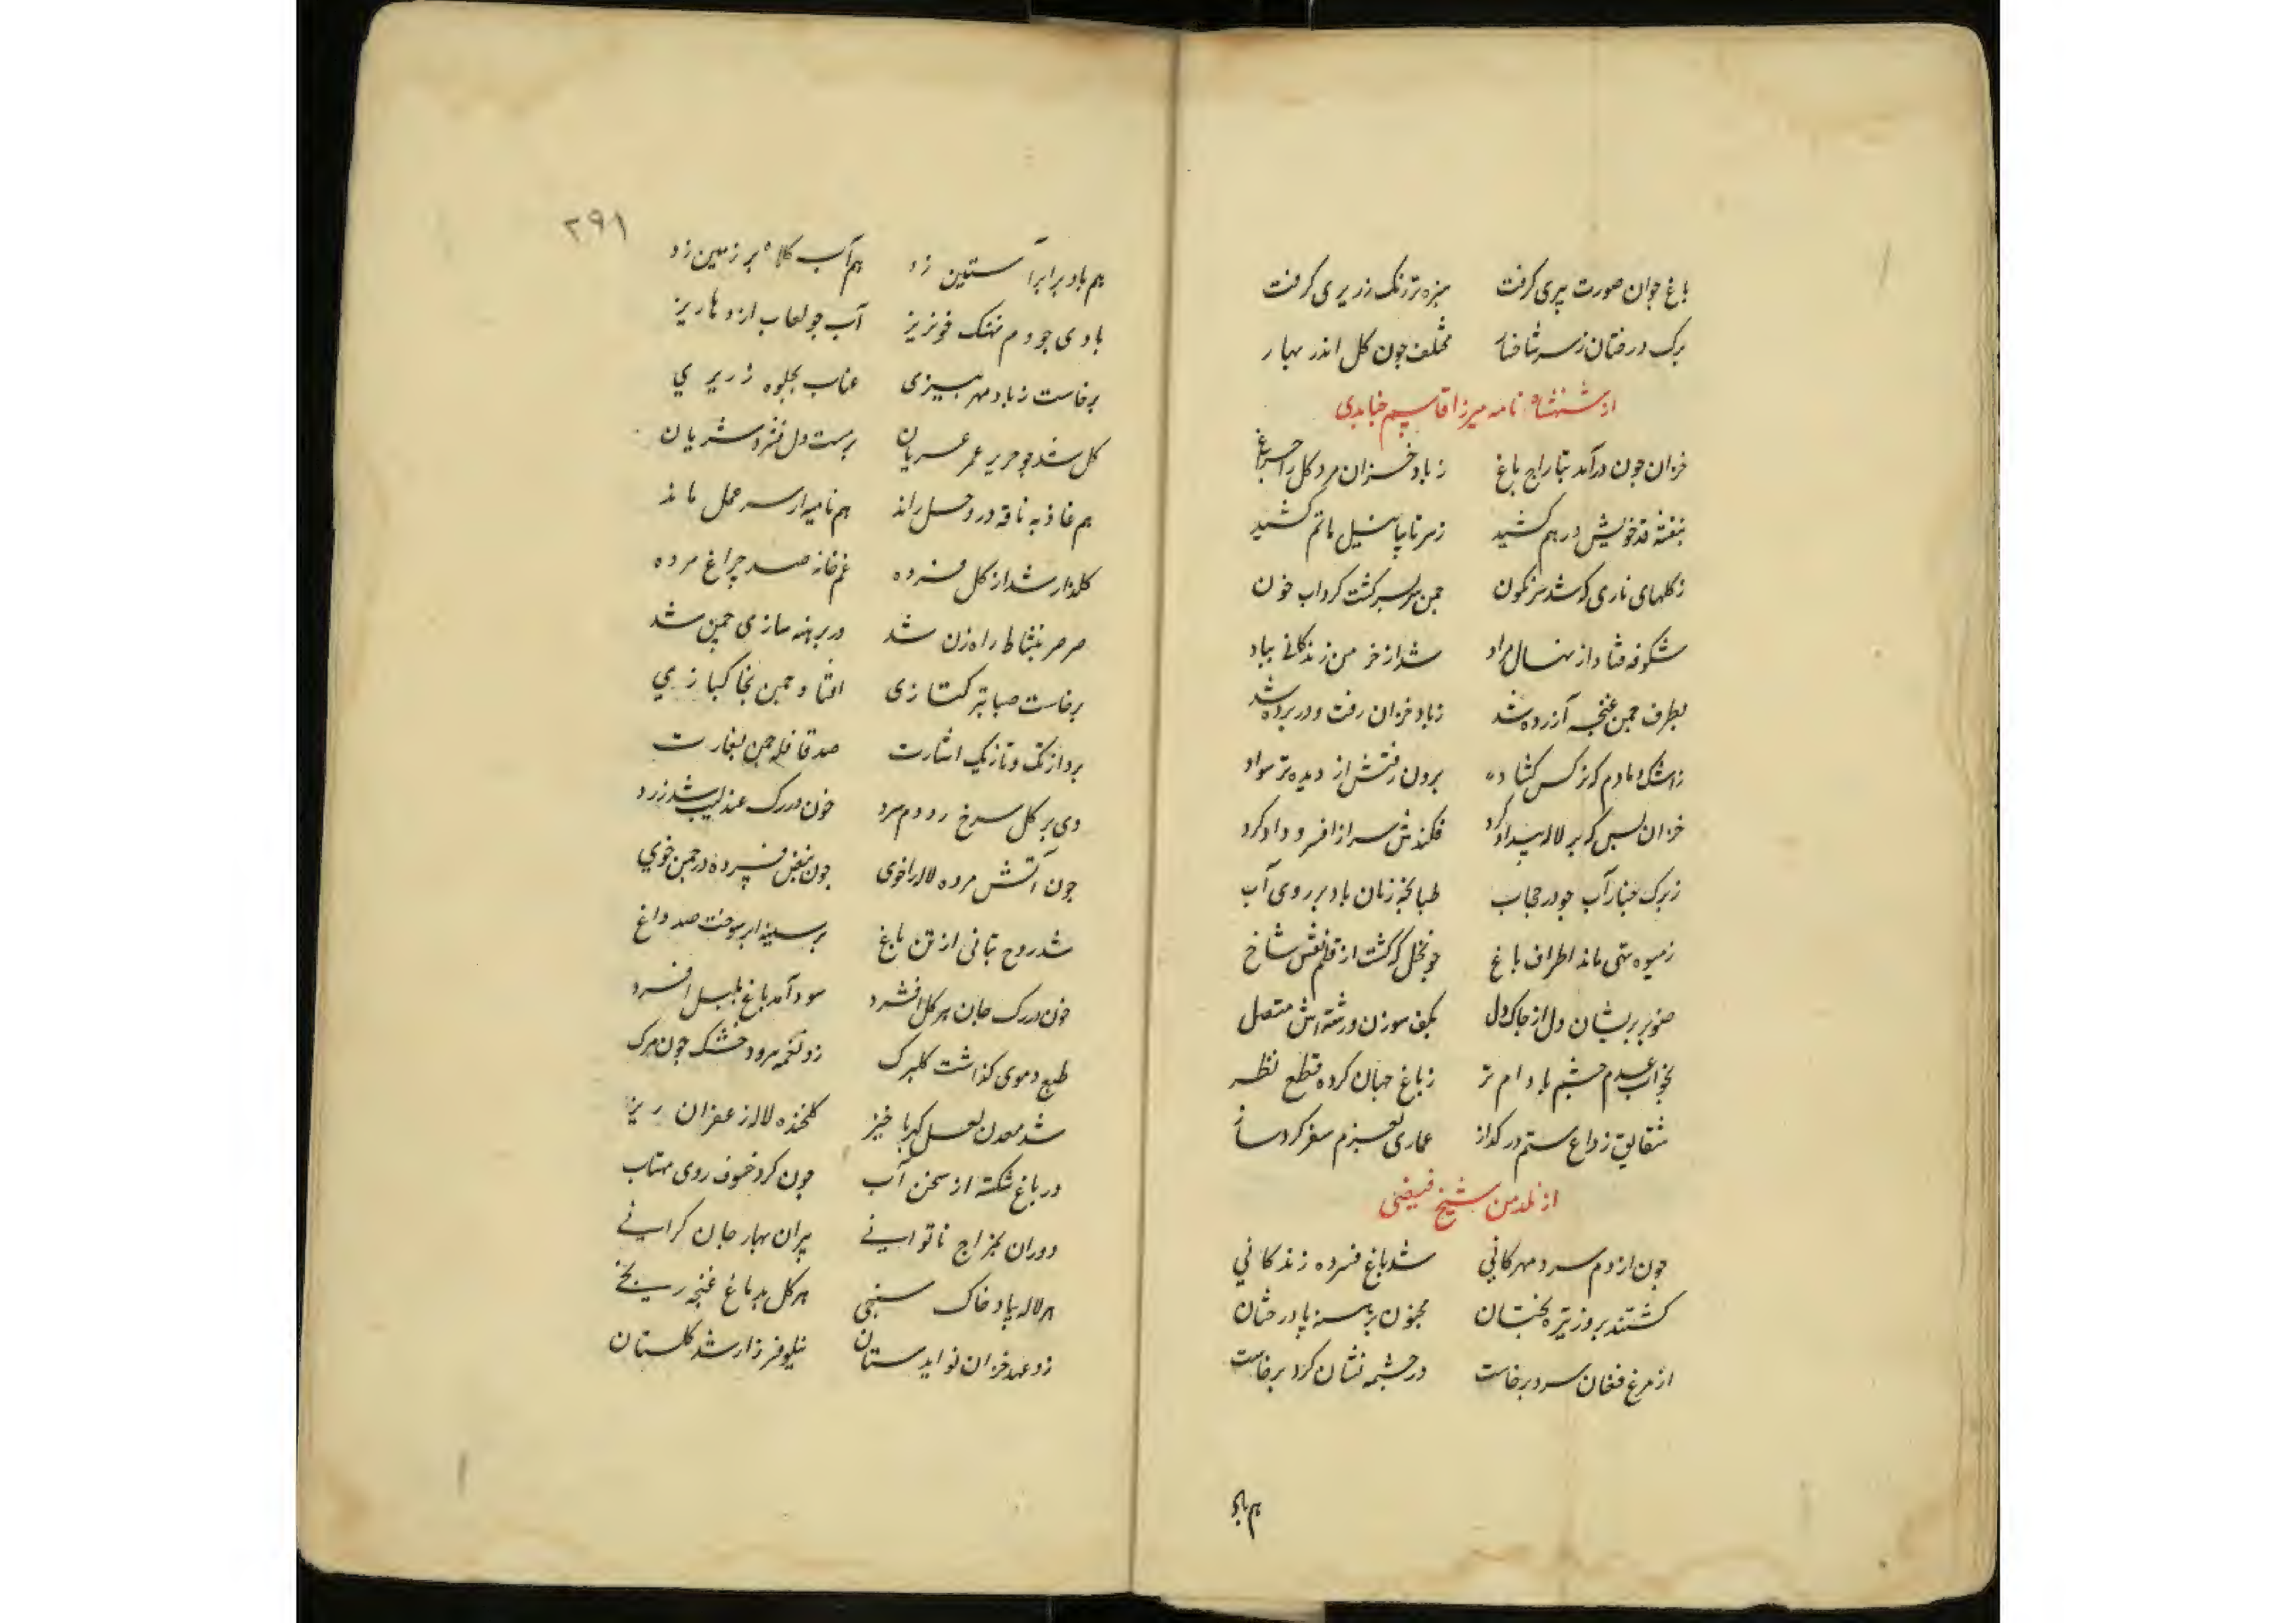 باغ جوان صورت پیری کرفت سبزه تر رنک زریری کرفت
برک درختان ز سر شاخسار مختلف چون کل اندر بهار
از شهنشاه نامه میرزا قاسم جنابدی
خزان چون درآمد بتاراج باغ ز باد خزان مرد کل را چراغ
بنفشه قد خویش در هم کشید ز سر تا بپا نیل ماتم کشید
ز کلهای ناری که شد سرنکون چمن سر بسر کشت کرداب خون
شکوفه فتاد از نهال مراد شد از خرمن زندکانی بباد
بطرف چمن غنچه آزرده شد ز باد خزان رفت و در پرده شد
ز اشک دمادم که نرکس کشاد برون رفتش از دیده تر سواد
خزان بس که بر لاله بیداد کرد فکندش سر از افسر و داد کرد
ز برک چنار آب جو در حجاب طبانچه زنان باد بر روی آب
ز میوه تهی ماند اطراف باغ چو نخل که کشت از قلم نقش شاخ
صنوبر پریشان دل از چاک دل بکف سوزن و رشته اش متصل
بخواب عدم چشم بادام تر ز باغ جهان کرده قطع نظر
شقایق ز داغ ستم در کداز عماری بعزم سفر کرد ساز
از نلدمن شیخ فیضی
چون از دم سرد مهرکانی شد باغ فسرده زندکانی
کشتند بروز تیره بختان مجنون برهنه پا درختان
از مرغ فغان سرد برخاست در چشمه نشان کرد برخاست
هم باد
۲۹۱
هم باد بر ابر آستین زد هم آب کلاه بر زمین زد
بادی چو دم نهنک خونریز آب چو لعاب اژدها ریز
برخاست ز باد مهر بیزی عناب بجلوه زریری
کل شد چو حریر عمر عریان بربست دل فسرد شریان
هم غاذیه ناقه در وحل راند هم نامیه از سر عمل ماند
کلزار شد از کل فسرده غمخانه صد چراغ مرده
صرصر بنشاط راه زن شد در برهنه سازی چمن شد
برخاست صبا بترکتازی افتاد چمن بخاکبازی
برد از تک و تازیک اشارت صد قافله چمن بغارت
دی بر کل سرخ زد دم سرد خون در رک عندلیب شد زرد
چون آتش مرده لاله را خوی چون نبض فسرده در چمن جوی
شد روح نباتی از تن باغ بر سینه ابر سوخت صد داغ
خون در رک جان هر کل افشرد سودا بدماغ بلبل افسرد
طبع دموی کذاشت کلبرک زد نغمه سرود خشک چون مرک
شد معدن لعل کهربا خیز کلخنده لاله زعفران ریز
در باغ شکسته از سخن آب چون کرد خسوف روی مهتاب
دوران بمزاج ناتوانی پیران بهار جان کرانی
هر لاله بباد خاک سنجی هر کل بدماغ غنچه رنجی
زد عهد خزان نوا بدستان نیلوفر زار شد کلستان